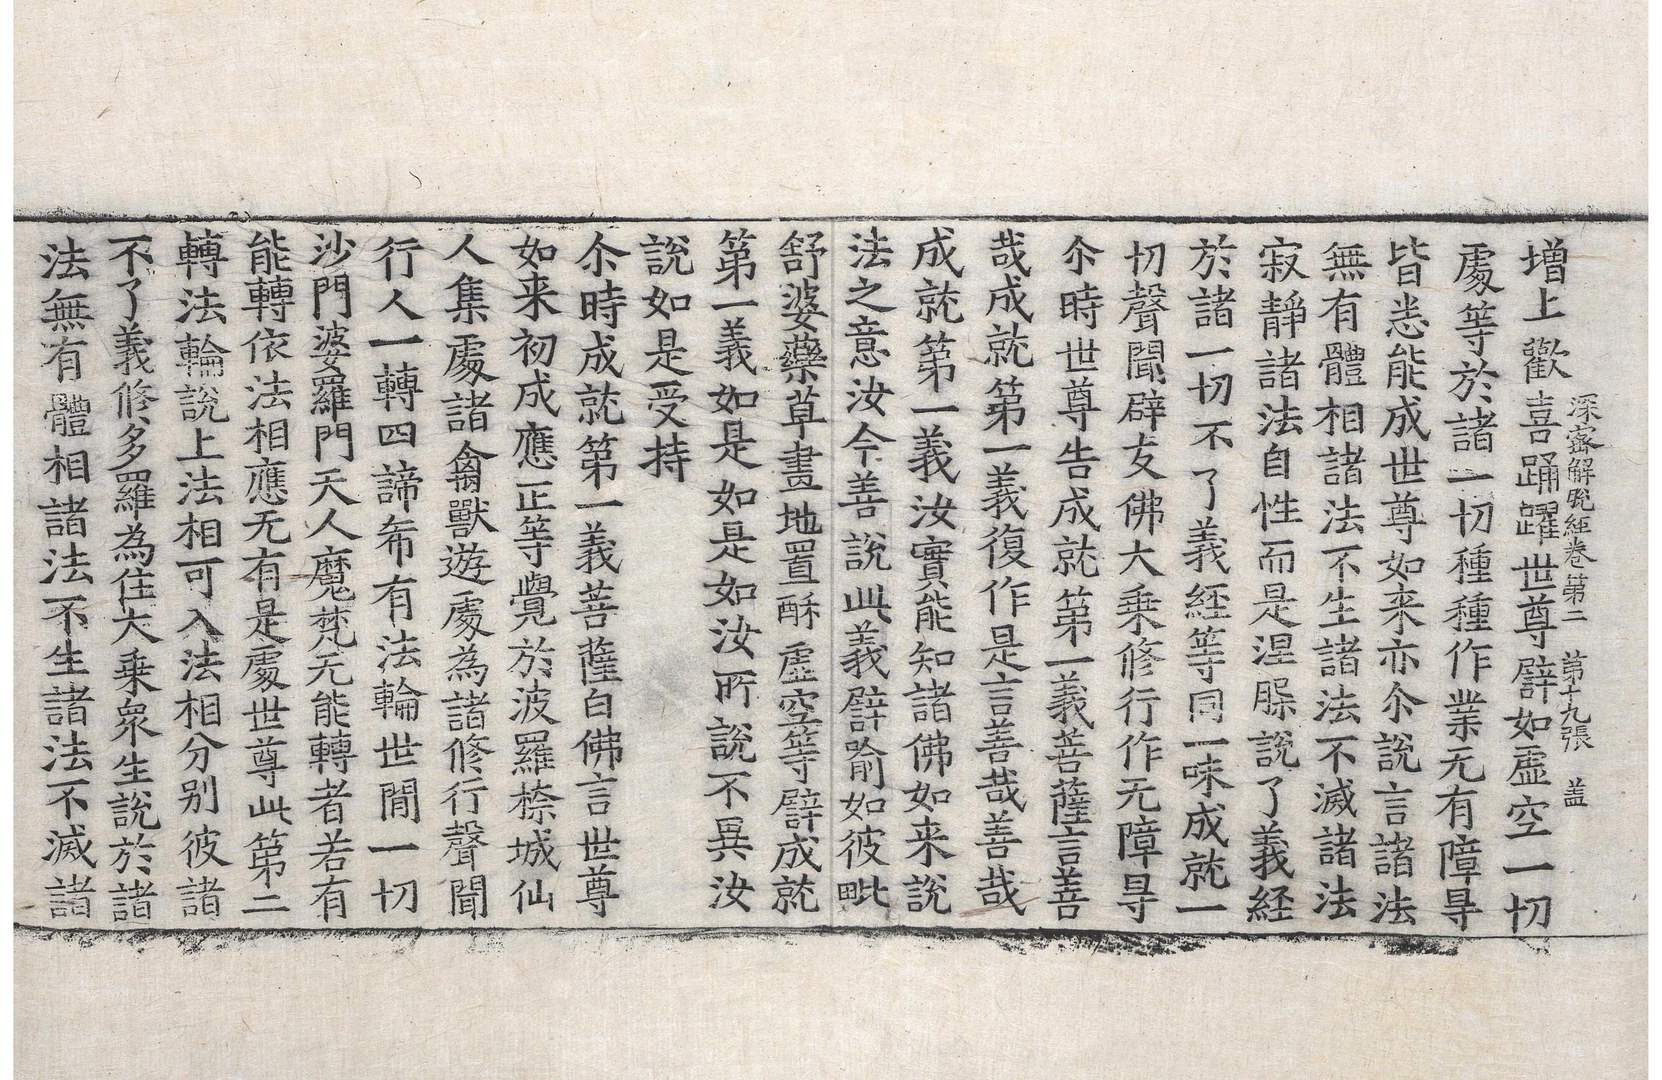 深密解脱経卷第二　第十九張　盖
増上歡喜踊躍世尊譬如虛空一切
處等於諸一切種種作業无有障㝵
皆悉能成世尊如来亦尒說言諸法
無有體相諸法不生諸法不滅諸法
寂靜諸法自性而是涅槃說了義經
於諸一切不了義經等同一味成就一
切聲聞辟支佛大乗修行作无障㝵
尒時世尊告成就第一義菩薩言善
哉成就第一義復作是言善哉善哉
成就第一義汝實能知諸佛如来說
法之意汝今善說此義譬喻如彼毗
舒婆藥草畫地置酥虛空等譬成就
第一義如是如是如汝所說不異汝
說如是受持
尒時成就第一義菩薩白佛言世尊
如来初成應正等覺於波羅㮈城仙
人集處諸禽獸遊處為諸修行聲聞
行人一轉四諦希有法輪世間一切
沙門婆羅門天人魔梵无能轉者若有
能轉依法相應无有是處世尊此第二
轉法輪說上法相可入法相分別彼諸
不了義修多羅為住大乗衆生說於諸
法無有體相諸法不生諸法不滅諸